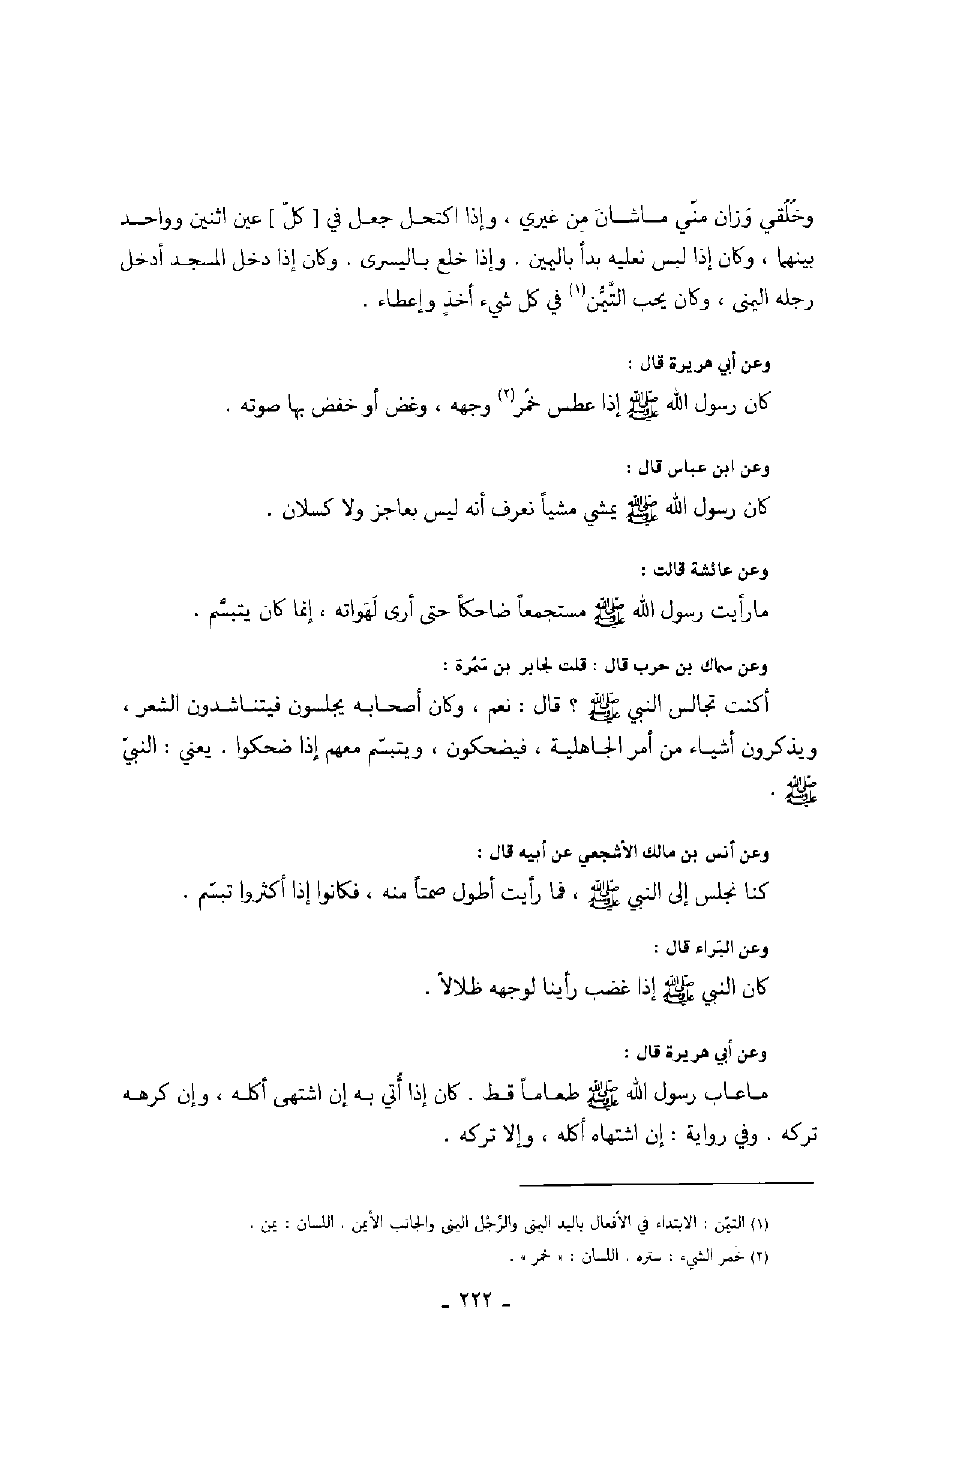 وخُلُقي وَزان منّي مـاشـانَ مِن غيري ، وإذا اكتحـل جعـل في [ كلّ ] عين اثنين وواحـد
بينهما ، وكان إذا لبس نعليه بدأ باليمين . وإذا خلع بـاليسرى . وكان إذا دخل المسجـد أدخل
رجله اليمنى ، وكان يحب التَّيَمُّن(١) في كل شيء أخذٍ وإعطاء .
وعن أبي هريرة قال :
كان رسول الله ﷺ إذا عطس خمّر(٢) وجهه ، وغض أو خفض بها صوته .
وعن ابن عباس قال :
كان رسول الله ﷺ يمشي مشياً نعرف أنه ليس بعاجز ولا كسلان .
وعن عائشة قالت :
مارأيت رسول الله ﷺ مستجمعاً ضاحكاً حتى أرى لَهَواته ، إنما كان يتبسَّم .
وعن سماك بن حرب قال : قلت لجابر بن سَمُرة :
أكنت تجالس النبي ﷺ ؟ قال : نعم ، وكان أصحـابـه يجلسون فيتنـاشـدون الشعر ،
ويذكرون أشيـاء من أمر الجـاهليـة ، فيضحكون ، ويتبسّم معهم إذا ضحكوا . يعني : النبيّ
ﷺ .
وعن أنس بن مالك الأشجعي عن أبيه قال :
كنا نجلس إلى النبي ﷺ ، فما رأيت أطول صمتاً منه ، فكانوا إذا أكثروا تبسّم .
وعن البَراء قال :
كان النبي ﷺ إذا غضب رأينا لوجهه ظلالاً .
وعن أبي هريرة قال :
مـاعـاب رسول الله ﷺ طعـامـاً قـط . كان إذا أُتي بـه إن اشتهى أكلـه ، وإن كرهـه
تركه . وفي رواية : إن اشتهاه أكله ، وإلا تركه .
(١) التيمّن : الابتداء في الأفعال باليد اليمنى والرِّجْل اليمنى والجانب الأيمن . اللسان : يمن .
(٢) خَمر الشيء : ستره . اللسان : « خمر » .
- ٢٢٢ -